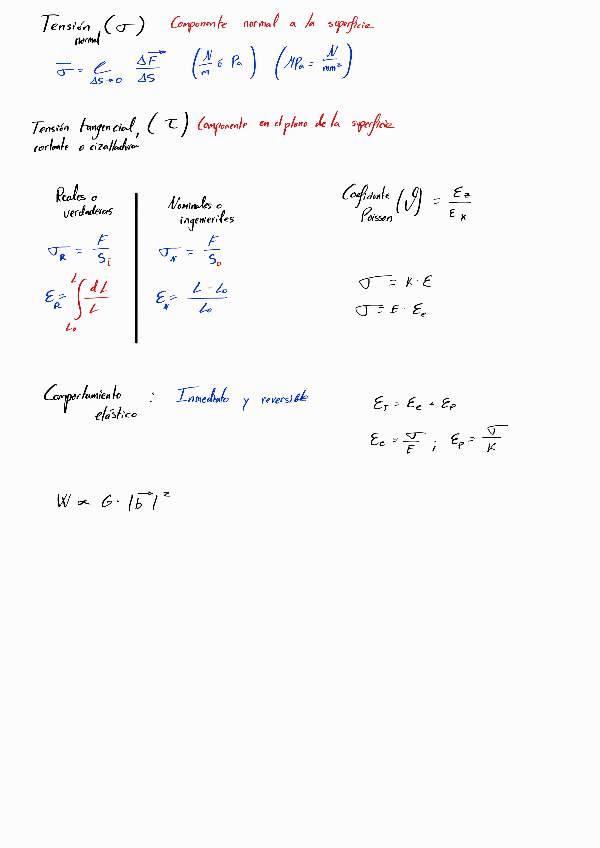 Tensión normal (σ) Componente normal a la superficie
σ = l ΔS→0 ΔF/ΔS (N/m ó Pa) (MPa = N/mm²)
Tensión tangencial, (τ) Componente en el plano de la superficie
cortante o cizalladura
Reales o verdaderas
σ_R = F/S_i
ε_R = ∫_{L₀}^{L} dL/L
Nominales o ingenieriles
σ_N = F/S₀
ε_N = L - L₀/L₀
Coeficiente Poisson (ϑ) = ε_z/ε_x
σ = K · ε
σ = E · ε_e
Comportamiento elástico : Inmediato y reversible
ε_T = ε_e + ε_p
ε_e = σ/E ; ε_p = σ/K
W ∝ G · |b⃗|²